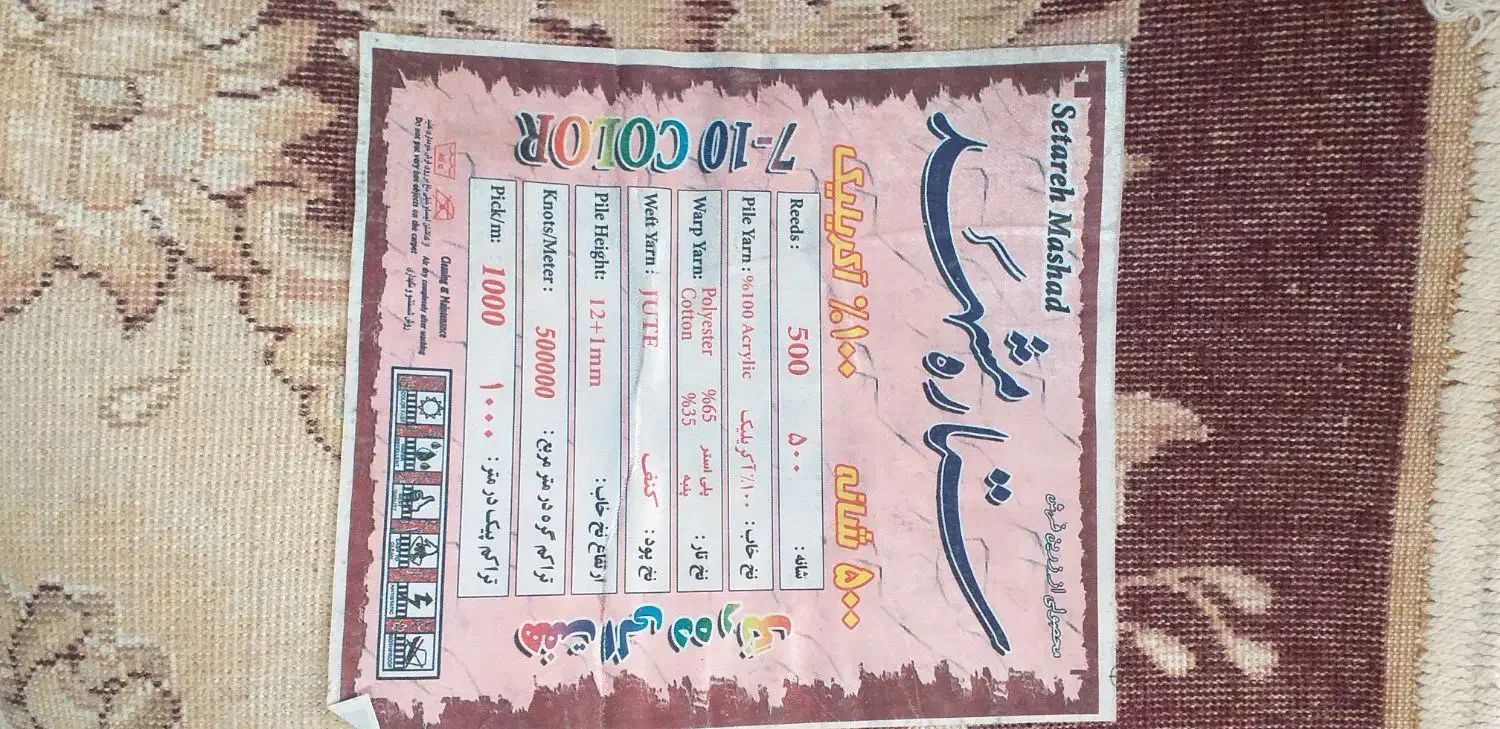 Setareh Mashad
محصولی از زرین فرش
ستاره مشهد
۱۰۰٪ آکریلیک ۵۰۰ شانه
7-10 COLOR
Reeds : 500 ۵۰۰ شانه :
Pile Yarn : %100 Acrylic ۱۰۰٪ آکریلیک نخ خاب :
Warp Yarn: Polyester %65 پلی استر نخ تار :
Cotton %35 پنبه
Weft Yarn : JUTE کنف نخ پود :
Pile Height: 12+1mm ارتفاع نخ خاب:
Knots/Meter : 500000 تراکم گره در متر مربع :
Pick/m: 1000 ۱۰۰۰ تراکم پیک در متر :
Cleaning & Maintenance
روش شستشو و نگهداری
Air dry completely after washing
Do not put very hot objects on the carpet